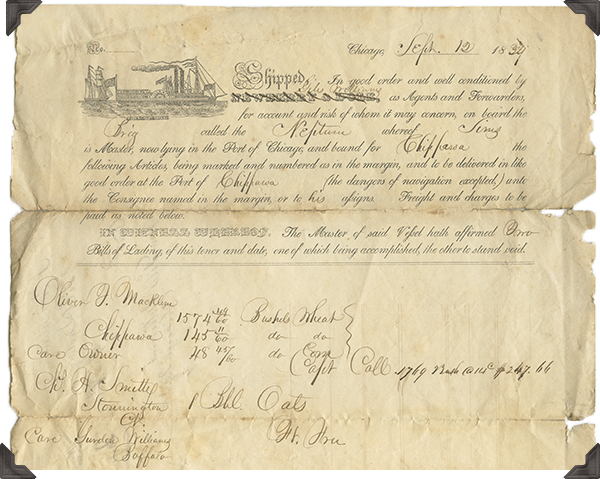 No.
Chicago, Sept. 12 1839
Shipped, In good order and well conditioned by
as Agents and Forwarders,
for account and risk of whom it may concern, on board the
Brig called the Neptune whereof Sims
is Master, now lying in the Port of Chicago, and bound for Chippawa the
following Articles, being marked and numbered as in the margin, and to be delivered in like
good order at the Port of Chippawa (the dangers of navigation excepted,) unto
the Consignee named in the margin, or to his assigns. Freight and charges to be
paid as noted below.
IN WITNESS WHEREOF, The Master of said Vessel hath affirmed Two
Bills of Lading, of this tenor and date, one of which being accomplished, the other to stand void.
Oliver T. Macklem
1574 Bushels Wheat
Chippawa 145 11/60 do do
Care 48 do
Capt Call 1769 Bush @ $247.66
H. Smith
Stonnington 1 Bbl. Oats
Ct.
Care Gurdon Williams
Buffalo